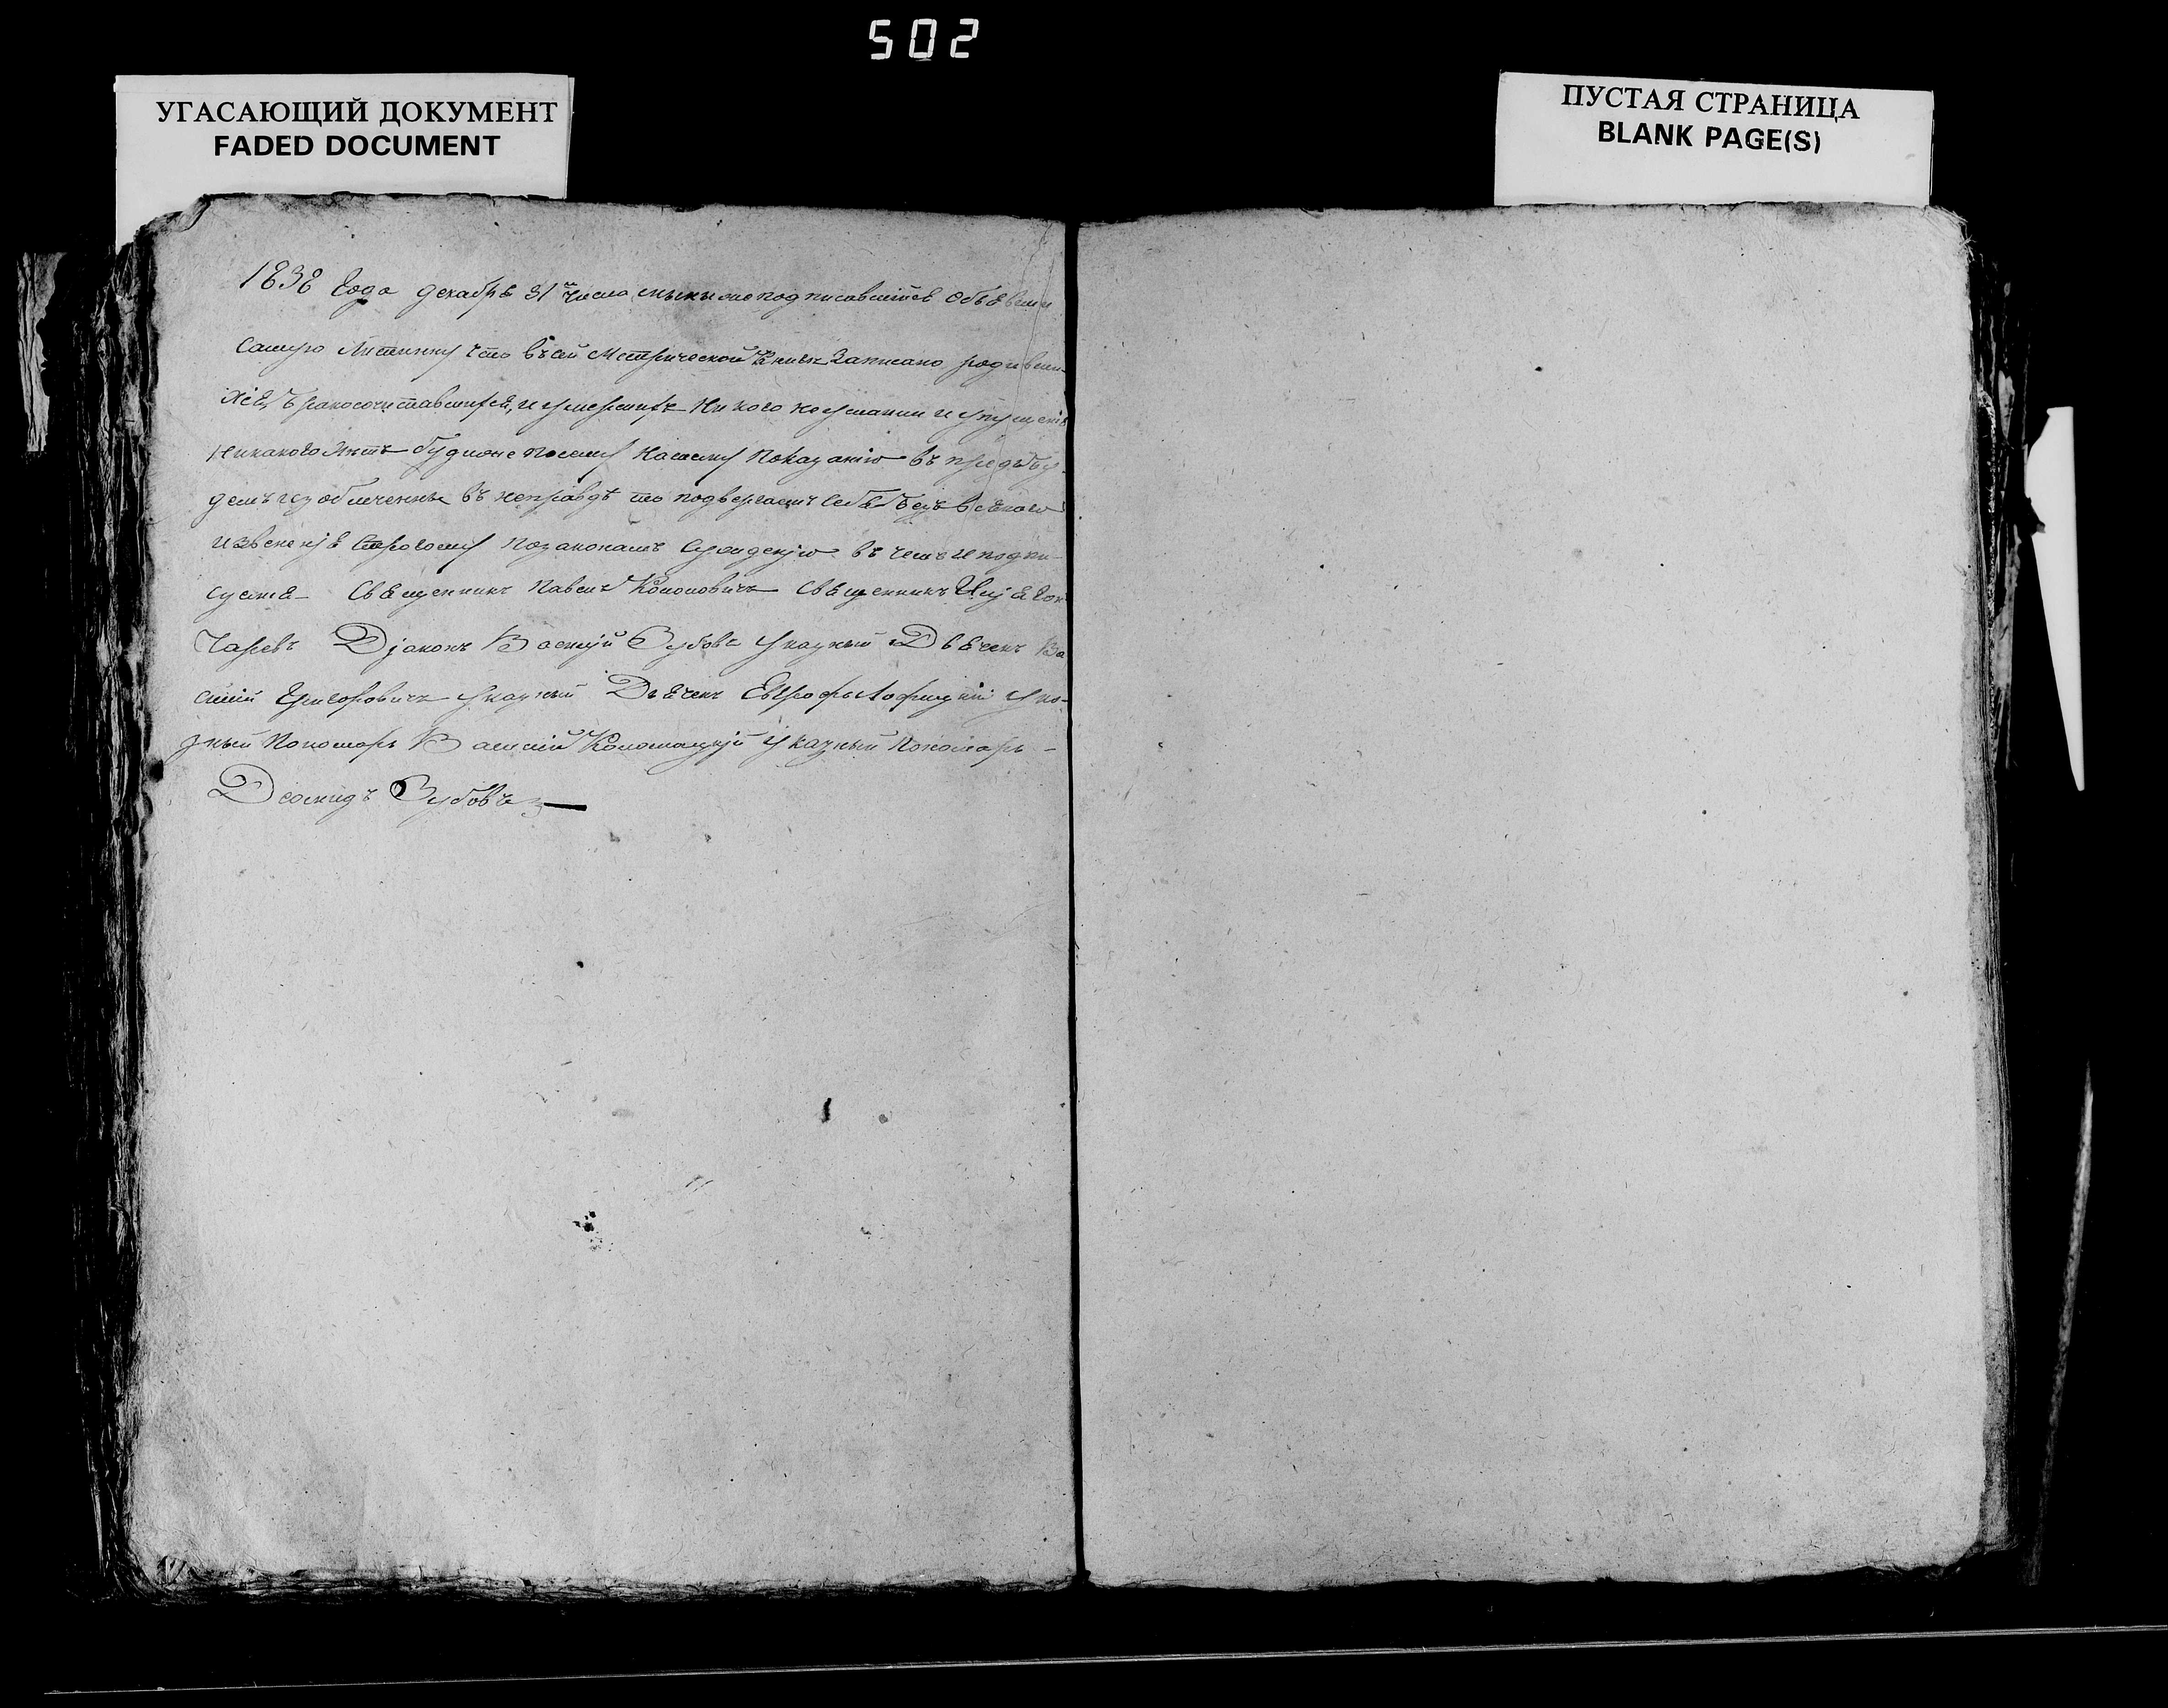 502
УГАСАЮЩИЙ ДОКУМЕНТ
FADED DOCUMENT
ПУСТАЯ СТРАНИЦА
BLANK PAGE(S)
1838 Года декабря 31 числа мы ниже подписавшійся объявили
самую Истинну что въ сей Метрической книгѣ Записано родивши-
хся, бракосочитавшихся, и умершихъ Никого не утаили и упущенія
никакого нѣтъ буди же по сему Нашему Показанію въ
демъ изобличенны въ неправдѣ то подвергаемъ себя безъ всякого
извененія строгому по законамъ сужденію въ чемъ и подпи-
суемся Священникъ Павелъ Кононовичъ Священникъ Илія Гон-
чаревъ Діаконъ Василій Зубовъ Указный Дьячекъ Ва-
силій Григоровичъ Указный Дьячекъ Ука-
зный Пономарь Василій Коломацкій Указный Пономарь
Деомидъ Зубовъ